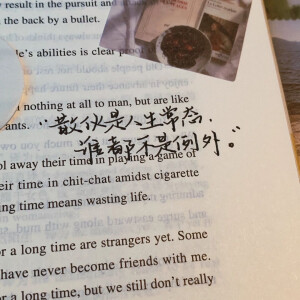 y result in the pursuit and
the back by a bullet.
le's abilities is clear proof
nothing at all to man, but are like
ants. “散伙是人生常态，
谁都不是例外。”
ol away their time in playing a game of
eir time in chit-chat amidst cigarette
ing time means wasting life.
or a long time are strangers yet. Some
have never become friends with me.
or a long time, but we still don't really